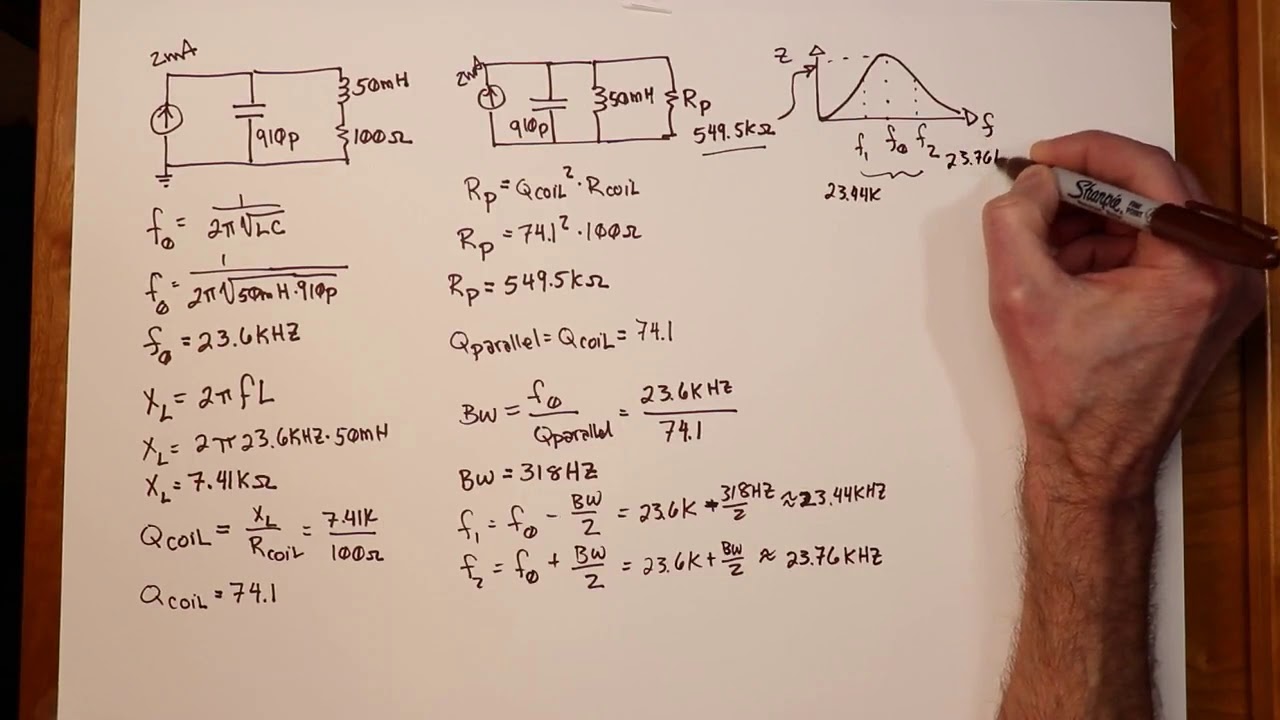 2mA
50mH
910p
100Ω
f₀ = 1 / 2π√LC
f₀ = 1 / 2π√50mH·910p
f₀ = 23.6KHZ
X_L = 2πfL
X_L = 2π23.6KHZ·50mH
X_L = 7.41KΩ
Q_COIL = X_L / R_COIL = 7.41K / 100Ω
Q_COIL = 74.1
2mA
910p
50mH
Rp
549.5KΩ
Rp = Q_COIL² · R_COIL
Rp = 74.1² · 100Ω
Rp = 549.5KΩ
Q_parallel = Q_COIL = 74.1
BW = f₀ / Q_parallel = 23.6KHZ / 74.1
BW = 318HZ
f₁ = f₀ - BW/2 = 23.6K - 318HZ/2 ≈ 23.44KHZ
f₂ = f₀ + BW/2 = 23.6K + BW/2 ≈ 23.76KHZ
Z
f
f₁ f₀ f₂
23.44K
23.76K
Sharpie